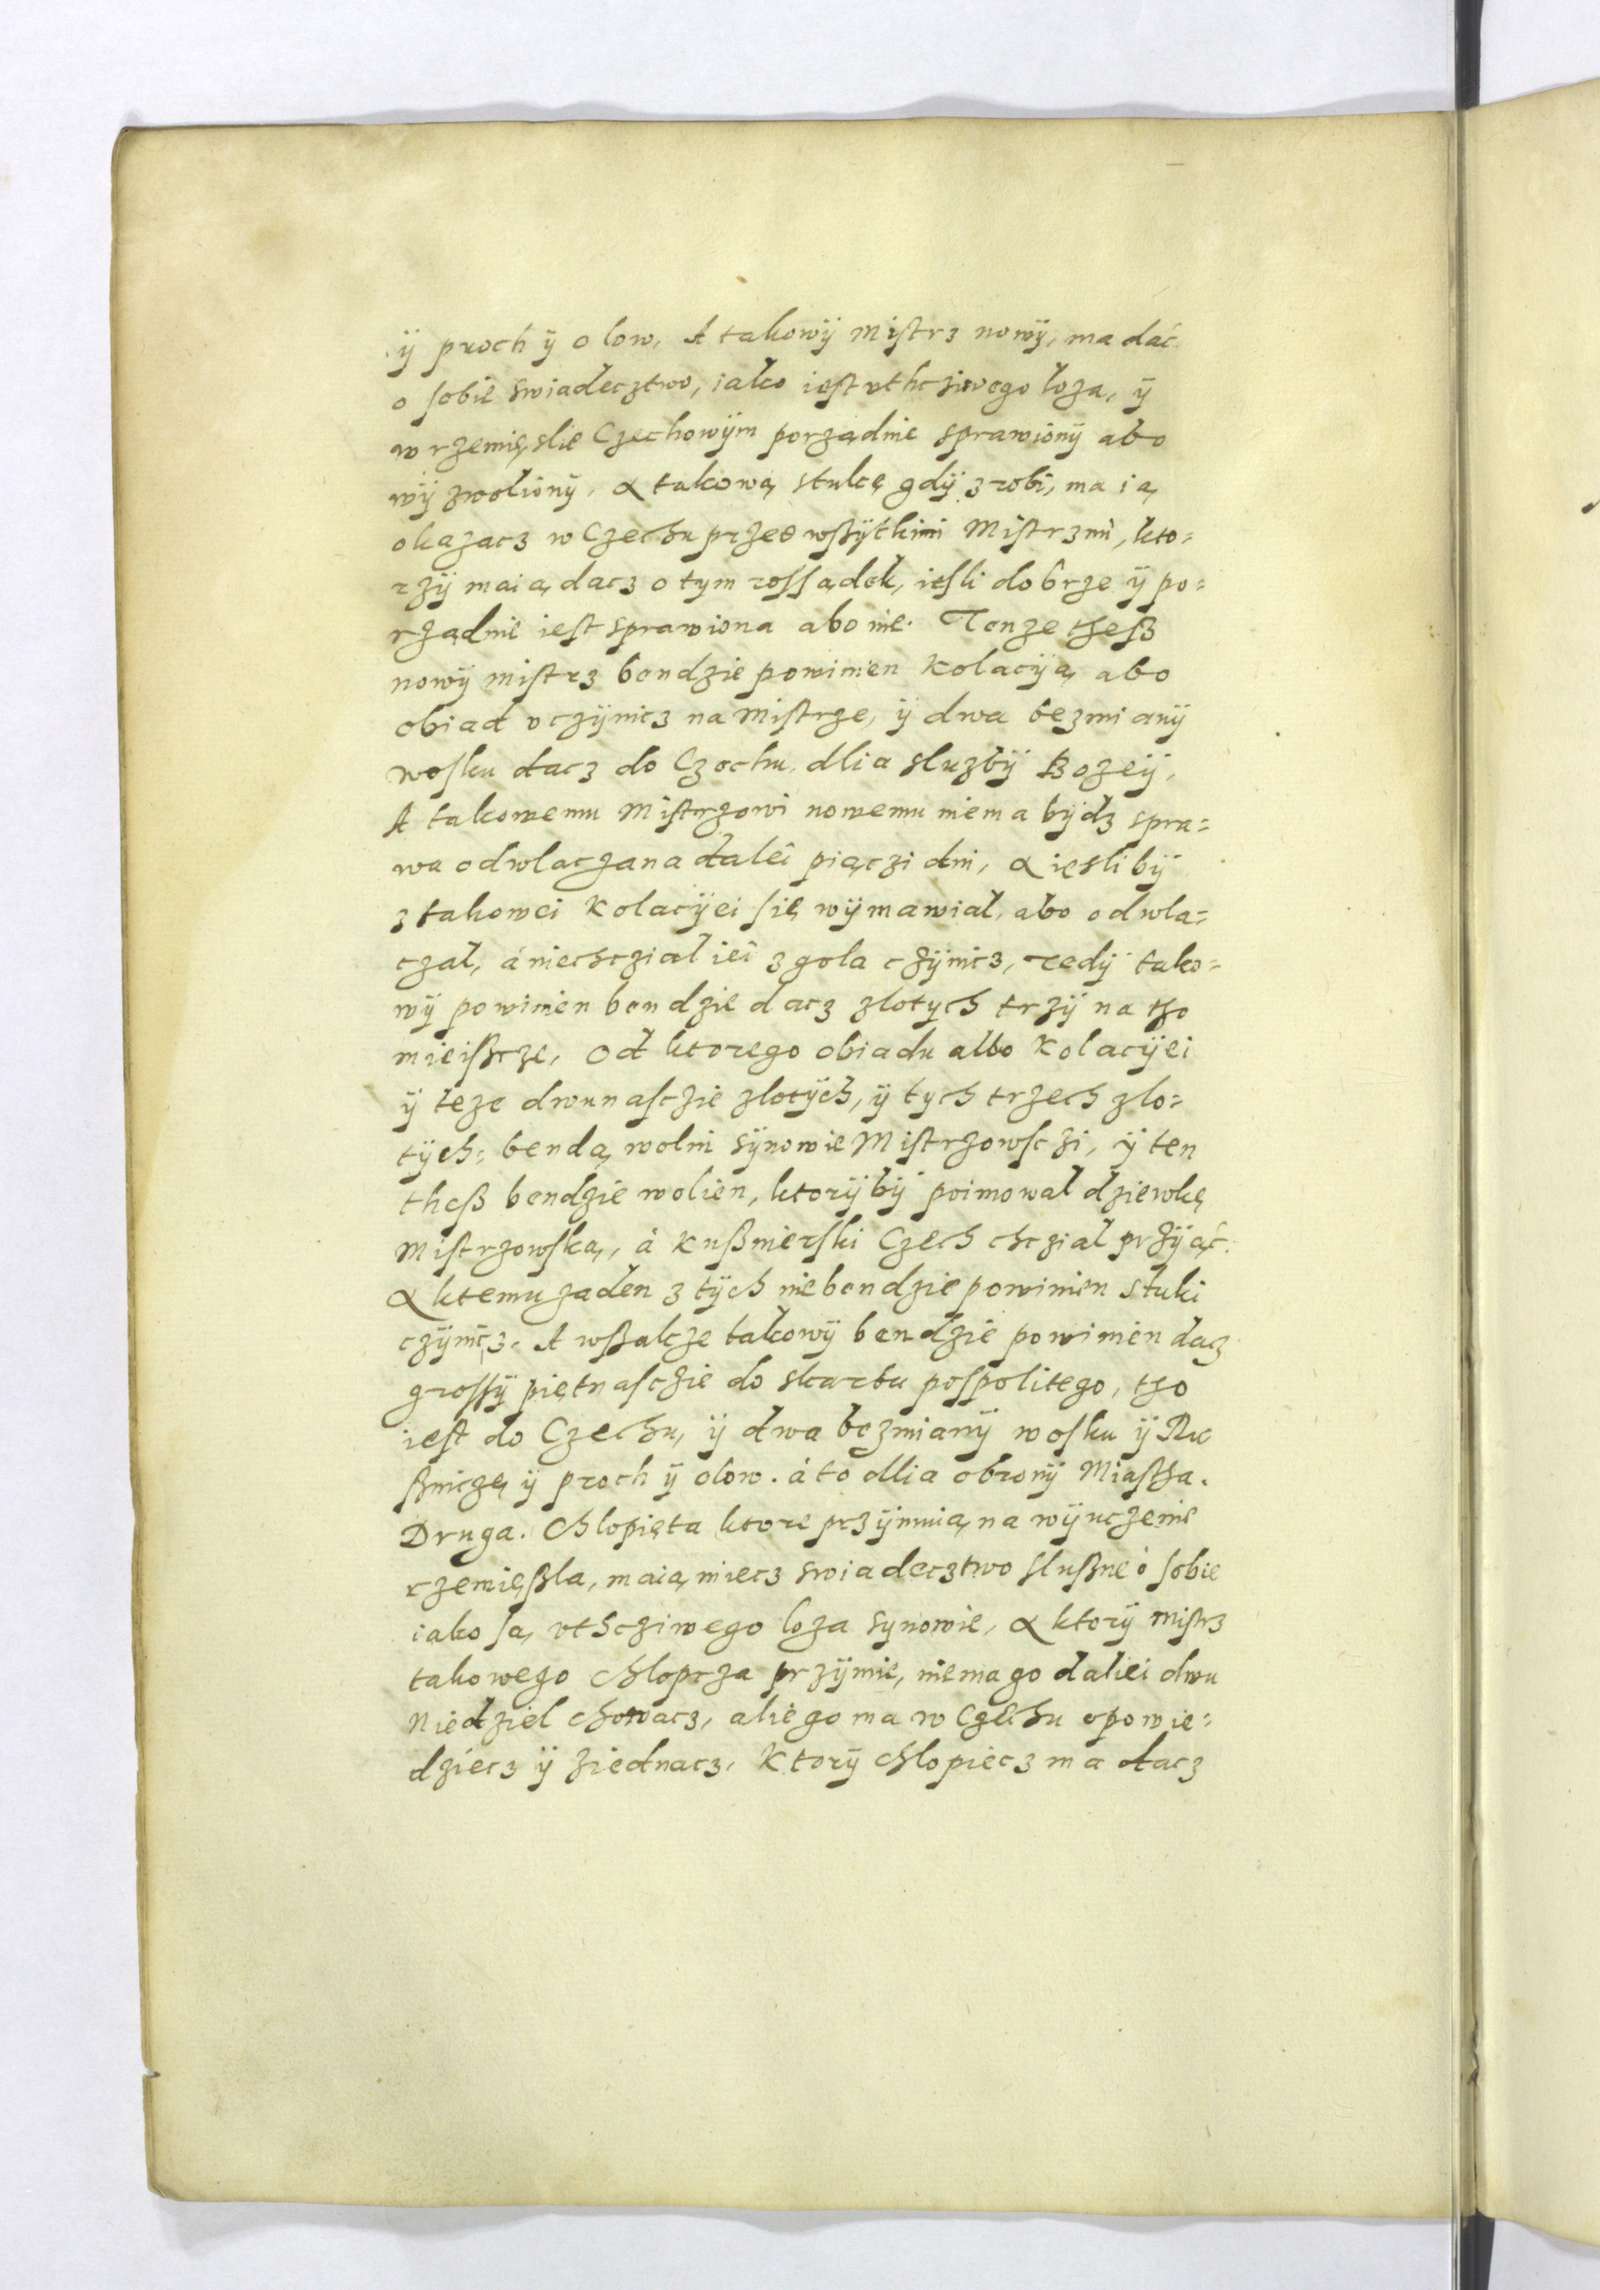 ÿ proch ÿ olow, A takowÿ Mistrz nowÿ, ma dać
o sobie swiadecztwo, iako iest vthcziwego loza, ÿ
w rzemięslie Czechowÿm porządnie sprawionÿ abo
wÿzwolionÿ, A takową stukę gdÿ zrobi, ma ią
okazacz w Czechu przed wßÿtkimi Mistrzmi, kto=
rzÿ maią dacz o tym rossądek, iesli dobrze ÿ po=
rządnie iest sprawiona abo nie. Tenze theß
nowÿ mistrz bendzie powinien Kolaciją abo
obiad vczÿnicz na Mistrze, ÿ dwa bezmianÿ
wosku dacz do Czechu, dlia sluzbÿ Bozeÿ,
A takowemu Mistrzowi nowemu niema bÿdz spra=
wa odwlaczana dalei piączi dni, A iesli bÿ
z takowei Kolacijei się wÿmawial, abo odwla=
czal, á niechczial iei zgola czÿnicz, Tedÿ tako=
wÿ powinien bendzie dacz zlotych trzÿ na tho
mieißcze, Od ktorego obiadu albo Kolacijei
ÿ teze dwunasczie zlotÿch, ÿ tych trzech zlo=
tÿch: bendą wolni sÿnowie Mistrzowsczi, ÿ ten
theß bendzie wolien, ktorÿ bÿ poimowal dziewkę
Mistrzowską, á Kußnierski Czech chczial przÿąć.
A ktemu zaden z tÿch nie bendzie powinien stuki
czÿnicz. A wßakze takowÿ bendzie powinien dacz
grossÿ piętnasczie do skarbu pospolitego, tho
iest do Czechu, ÿ dwa bezmianÿ wosku ÿ Ru
ßniczę ÿ proch ÿ olow. á to dlia obronÿ Miastha.
Druga. Chlopięta ktore przÿmuią na wÿuczenie
rzemięßla, maią miecz swiadecztwo slußne ó sobie
iako są vthcziwego loza synowie, A ktorÿ mistrz
takowego chlopcza przÿmie, niema go daliei dwu
Niedziel chowacz, alie go ma w Czechu opowie=
dziecz ÿ ziednacz, Ktorÿ chlopiecz ma dacz